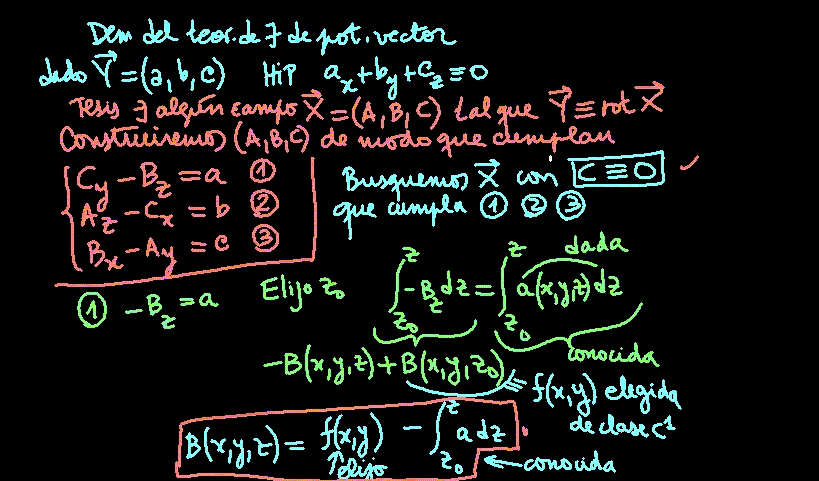 Dem del teor. de ∃ de pot. vector
dado Y⃗ = (a, b, c) HiP a_x + b_y + c_z ≡ 0
Tesis ∃ algún campo X⃗ = (A, B, C) tal que Y⃗ ≡ rot X⃗
Construiremos (A, B, C) de modo que cumplan
C_y − B_z = a ①
A_z − C_x = b ②
B_x − A_y = c ③
Busquemos X⃗ con C ≡ 0 ✓
que cumpla ① ② ③
① −B_z = a Elijo z₀ ∫_{z₀}^{z} −B_z dz = ∫_{z₀}^{z} a(x,y,z) dz
dada
conocida
−B(x,y,z) + B(x,y,z₀)
≡ f(x,y) elegida
de clase C¹
B(x,y,z) = f(x,y) − ∫_{z₀}^{z} a dz
↑ elijo
← conocida